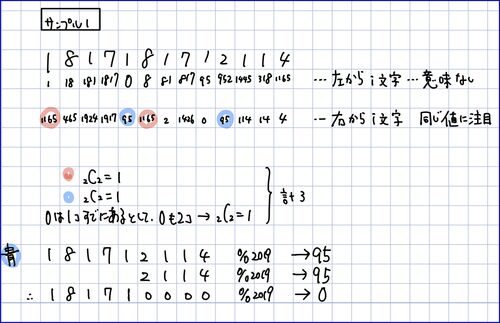 サンプル1
1 8 1 7 1 8 1 7 1 2 1 1 4
1 18 181 1817 0 8 81 817 95 952 1445 318 1165 …左から i文字…意味なし
1165 465 1924 1917 95 1165 2 1426 0 95 114 14 4 …右から i文字 同じ値に注目
₂C₂=1
₂C₂=1
0は1コすでにあるとして、0も2コ→₂C₂=1
計3
青 1 8 1 7 1 2 1 1 4 %2019 →95
2 1 1 4 %2019 →95
∴ 1 8 1 7 1 0 0 0 0 %2019 →0